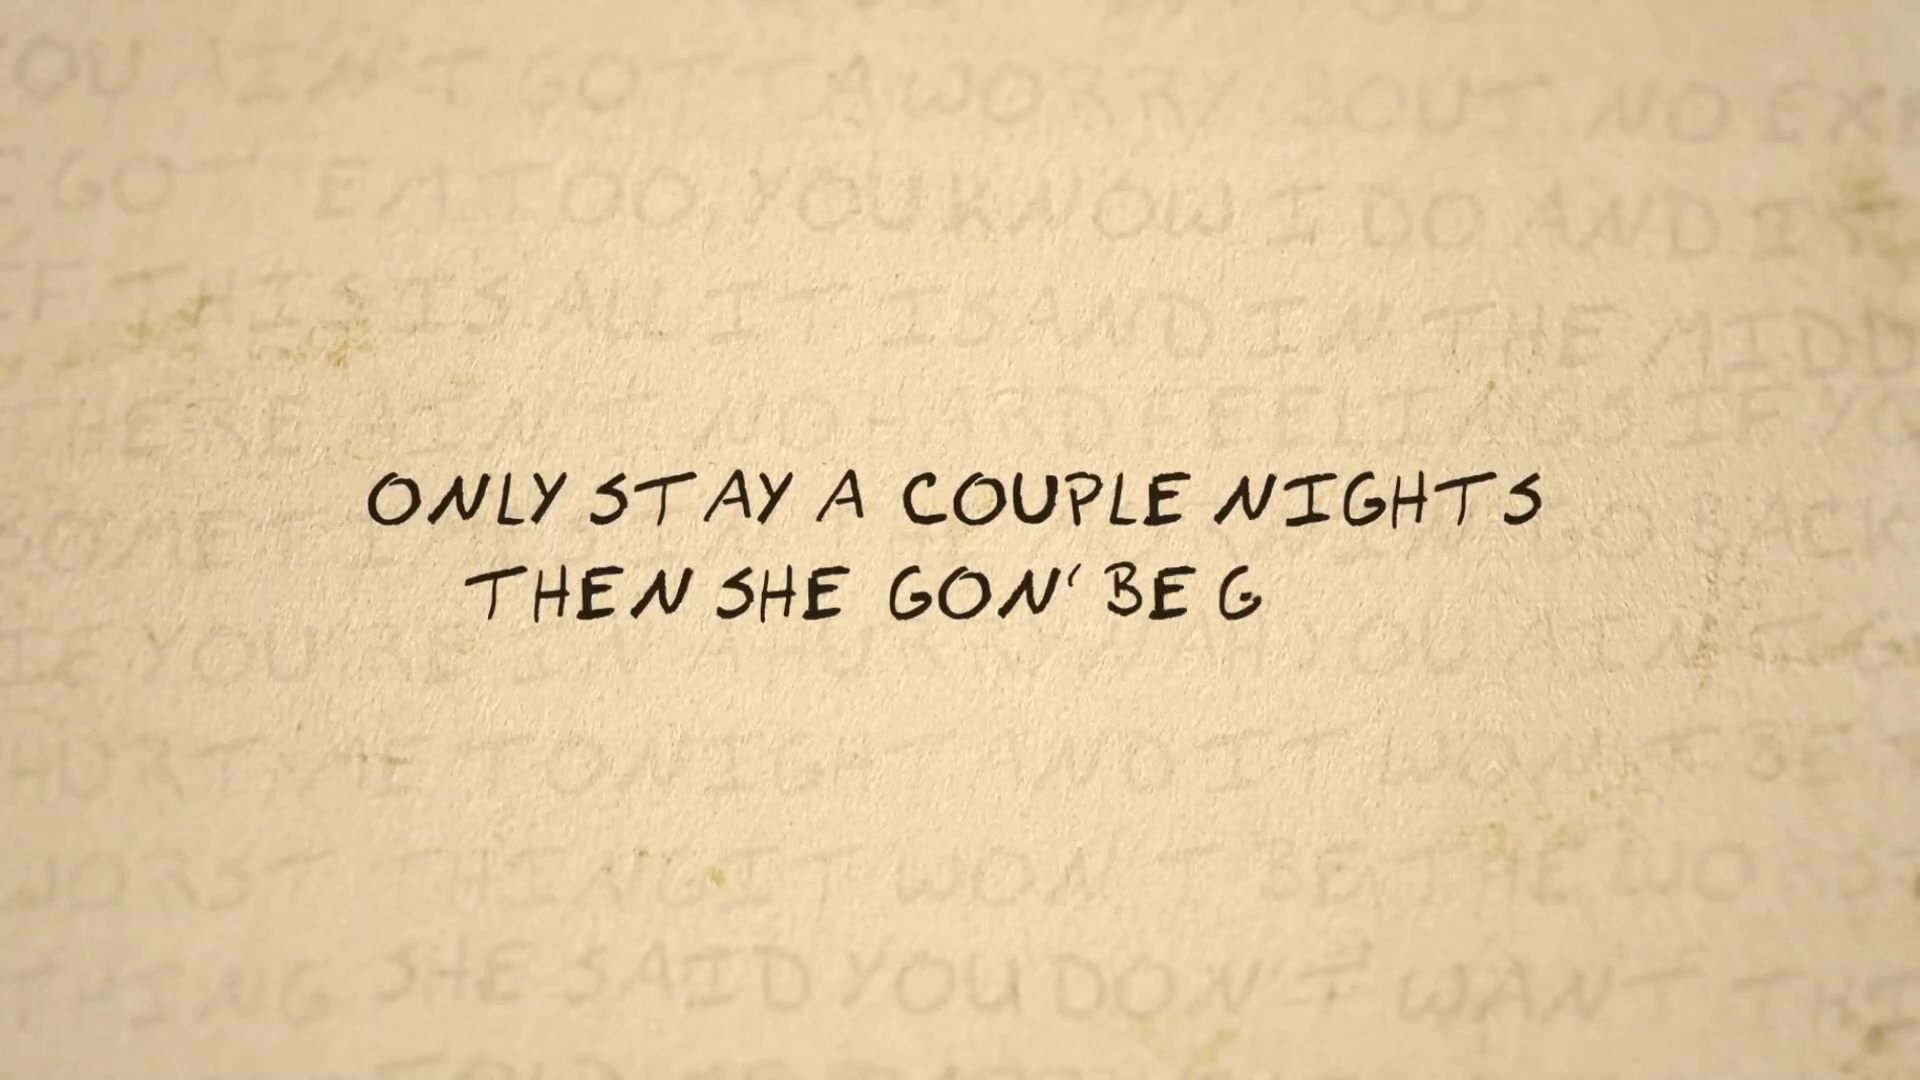 OU AIN'T GOTTA WORRY BOUT NO EX
GOT EM TOO YOU KNOW I DO AND I
IF THIS IS ALL IT IS AND IN THE MIDD
THERE AIN'T NO HARD FEELINGS IF YO
ONLY STAY A COUPLE NIGHTS
THEN SHE GON' BE G
IF YOU'RE IN A HURRY NAH YOU AIN'T
HURT ME TONIGHT AND IT WON'T BE
WORST THING IT WON'T BE THE WORS
THING SHE SAID YOU DON'T WANT THI